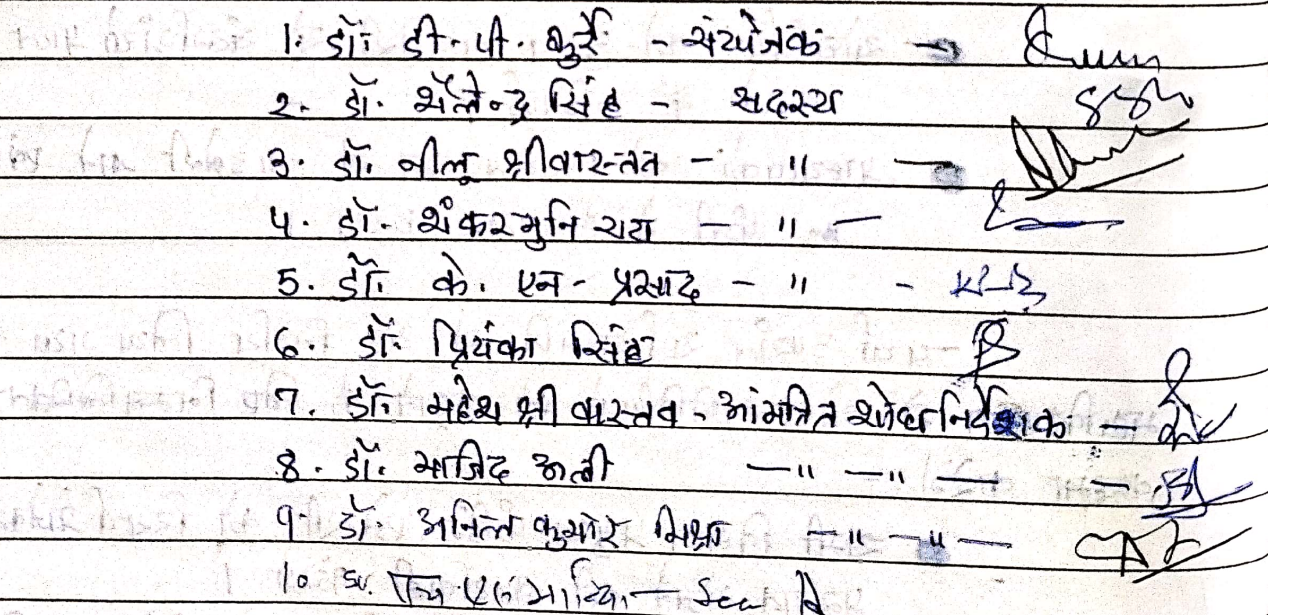 1. डॉ. डी. पी. कुर्रे - संयोजक
2. डॉ. शैलेन्द्र सिंह - सदस्य
3. डॉ. नीलू श्रीवास्तव - "
4. डॉ. शंकरमुनि राय - " -
5. डॉ. के. एन. प्रसाद - " -
6. डॉ. प्रियंका सिंह
7. डॉ. महेश श्रीवास्तव - आंमत्रित शोध निर्देशक -
8. डॉ. माजिद अली - " - " -
9. डॉ. अनिल कुमार मिश्रा - " - " -
10.